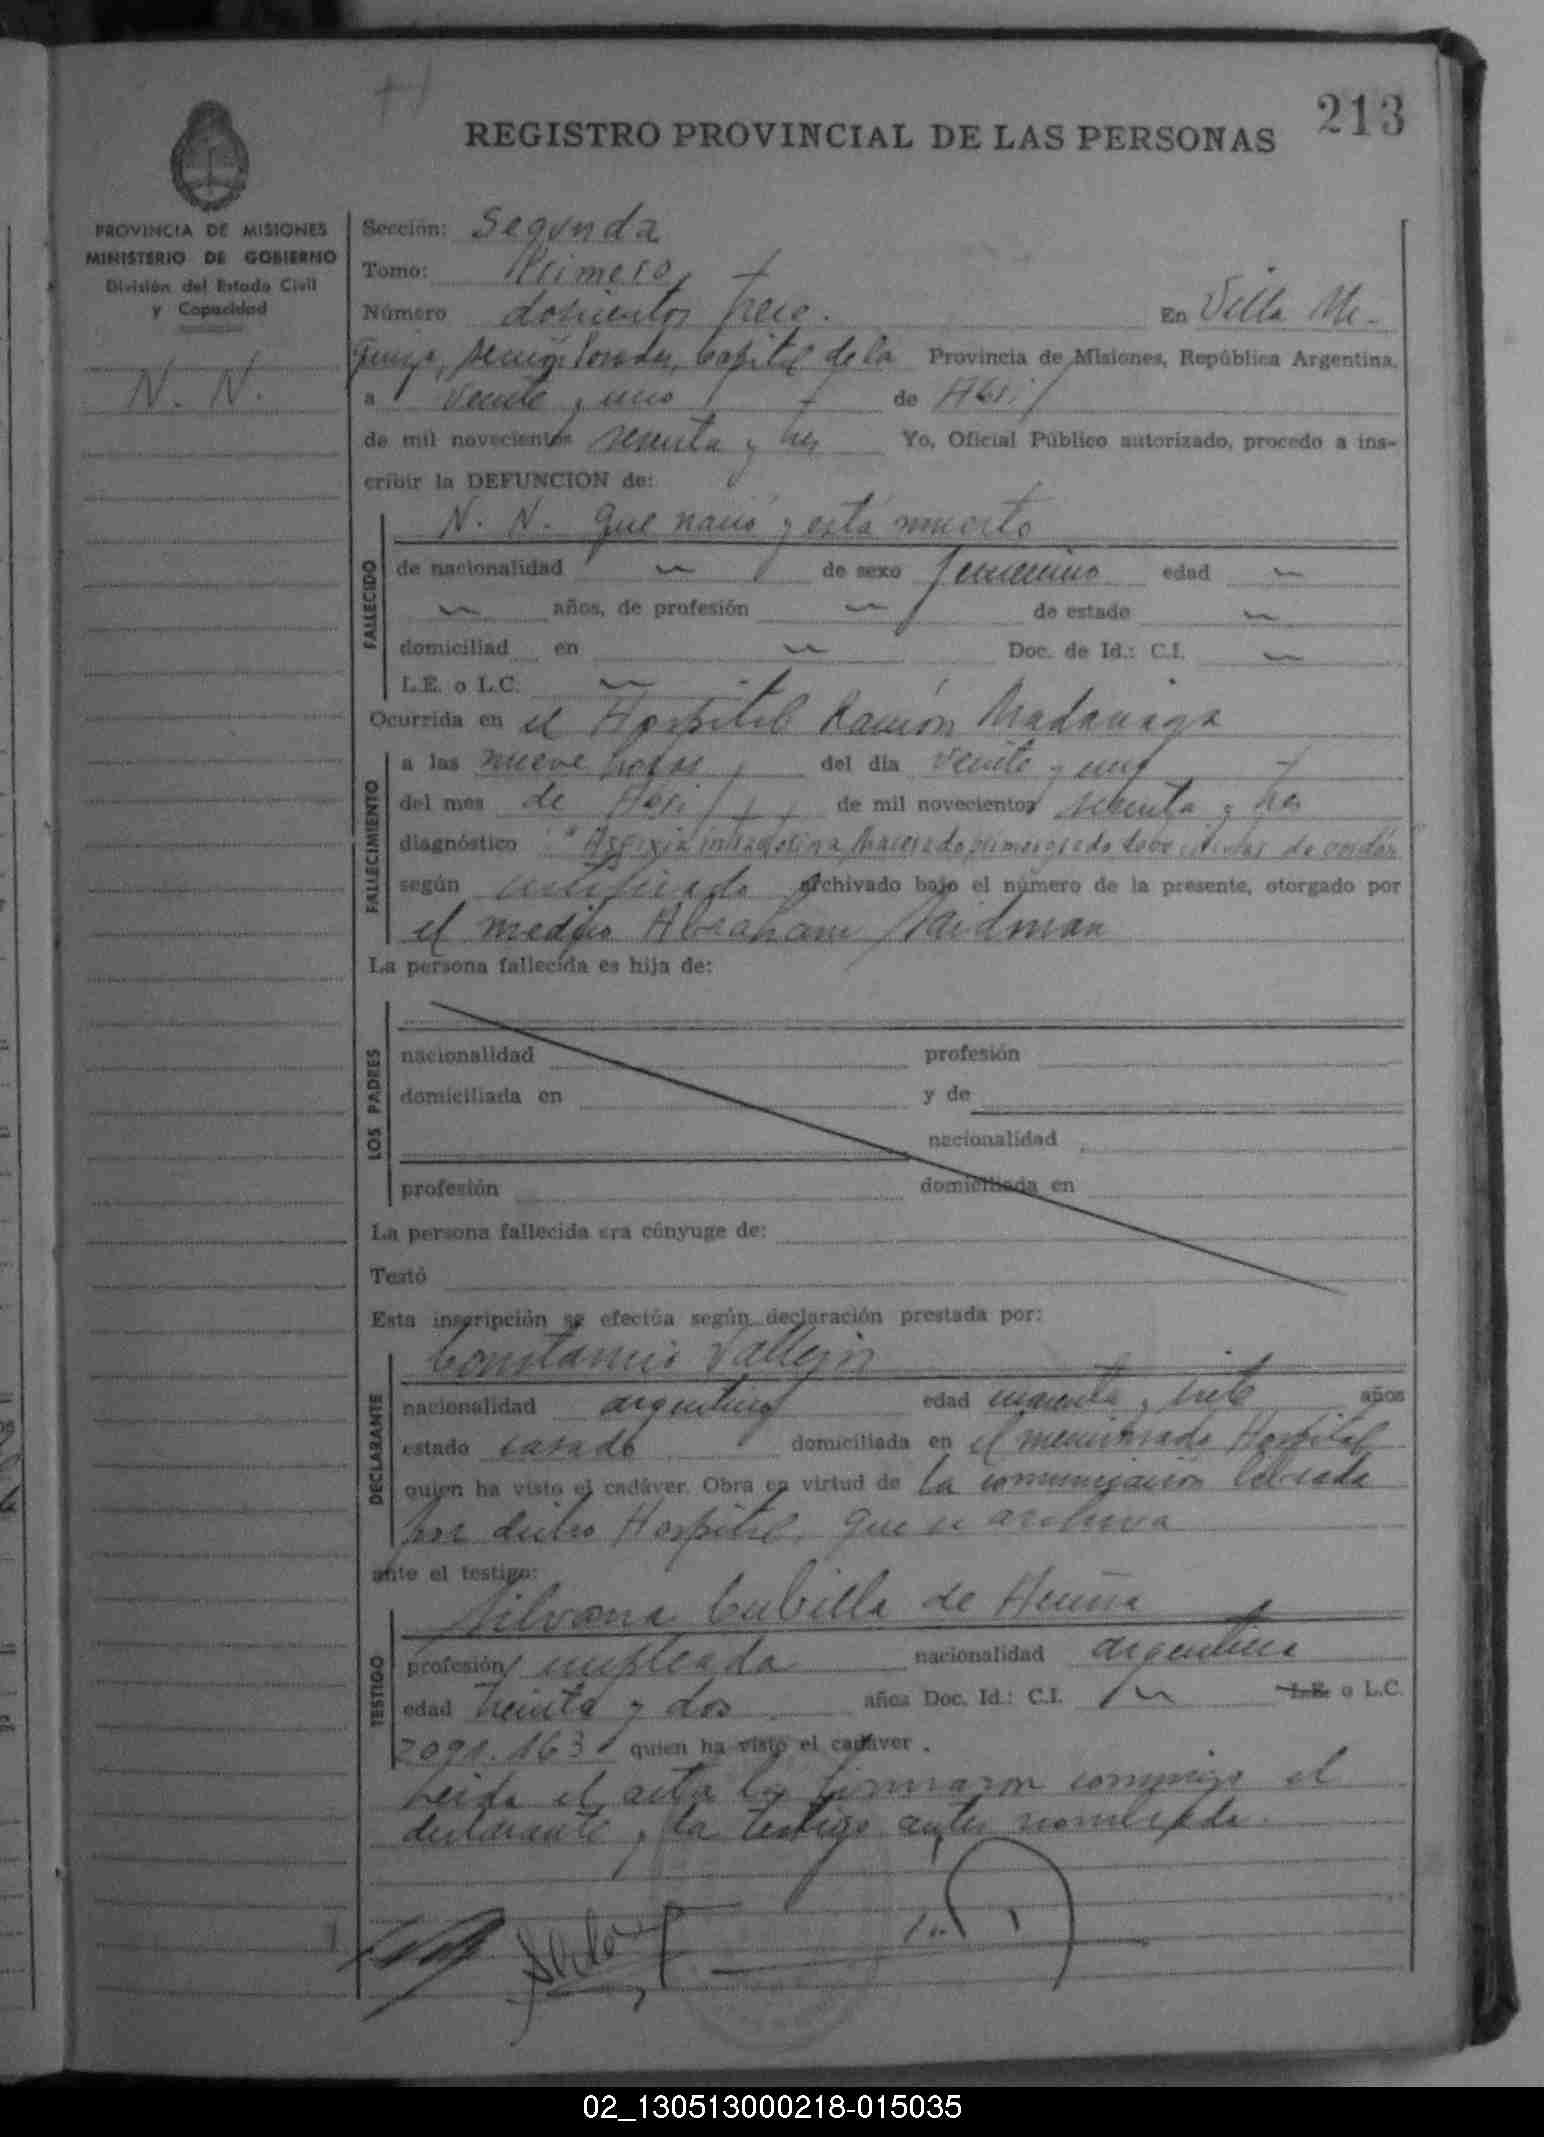 213
REGISTRO PROVINCIAL DE LAS PERSONAS
PROVINCIA DE MISIONES
MINISTERIO DE GOBIERNO
División del Estado Civil
y Capacidad
N. N.
Sección: Segunda
Tomo: Primero
Número dosientos trece. En Villa Ur-
quiza, sección Posadas, Capital de la Provincia de Misiones, República Argentina,
a veinte y uno de Abril
de mil novecientos setenta y tres Yo, Oficial Público autorizado, procedo a ins-
cribir la DEFUNCION de:
N. N. que nació y está muerto
FALLECIDO
de nacionalidad de sexo femenino edad
años, de profesión de estado
domiciliad en Doc. de Id.: C.I.
L.E. o L.C.
Ocurrida en el Hospital Ramón Madariaga
FALLECIMIENTO
a las nueve horas del día veinte y uno
del mes de Abril de mil novecientos setenta y tres
diagnóstico "Asfixia intrauterina, Macerado primer grado doble circular de cordón"
según certificado archivado bajo el número de la presente, otorgado por
el medico Abraham Saidman
La persona fallecida es hija de:
LOS PADRES
nacionalidad profesión
domiciliada en y de
nacionalidad
profesión domiciliada en
La persona fallecida era cónyuge de:
Testó
Esta inscripción se efectúa según declaración prestada por:
Constancio Vallejos
DECLARANTE
nacionalidad argentino edad cuarenta y siete años
estado casado domiciliada en el mencionado Hospital
quien ha visto el cadáver. Obra en virtud de la comunicación librada
por dicho Hospital, que se archiva
ante el testigo:
Silvana Cubilla de
TESTIGO
profesión empleada nacionalidad argentina
edad treinta y dos años Doc. Id.: C.I. L.E. o L.C.
2091.163 quien ha visto el cadáver.
Leida el acta la firmaron conmigo el
declarante y la testigo antes nombrada.
02_130513000218-015035